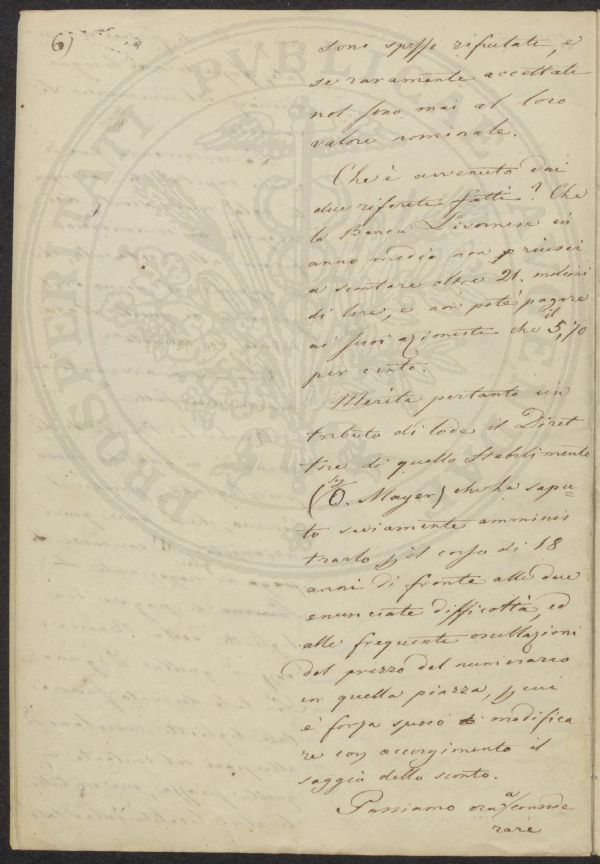 6)
sono spesso rifiutate, e
se raramente accettate
nol sono mai al loro
valore nominale.
Che è avvenuto dai
due riferiti fatti? Che
la Banca Livornese in
anno medio non riuscì
a scontare oltre 21. milioni
di lire, e non potè pagare
ai suoi azionisti che il 5,70
per cento.
Merita pertanto un
tributo di lode il Diret
tore di quello Stabilimento
(Sig. O. Mayer) che ha sapu-
to saviamente amminis
trarlo pel corso di 18
anni di fronte alle due
enunciate difficoltà, ed
alle frequenti oscillazioni
del prezzo del numerario
in quella piazza, per cui
è forza spesso modifica
re con accorgimento il
saggio dello sconto.
Passiamo ora a conside
rare
PROSPERITATI PVBLICAE